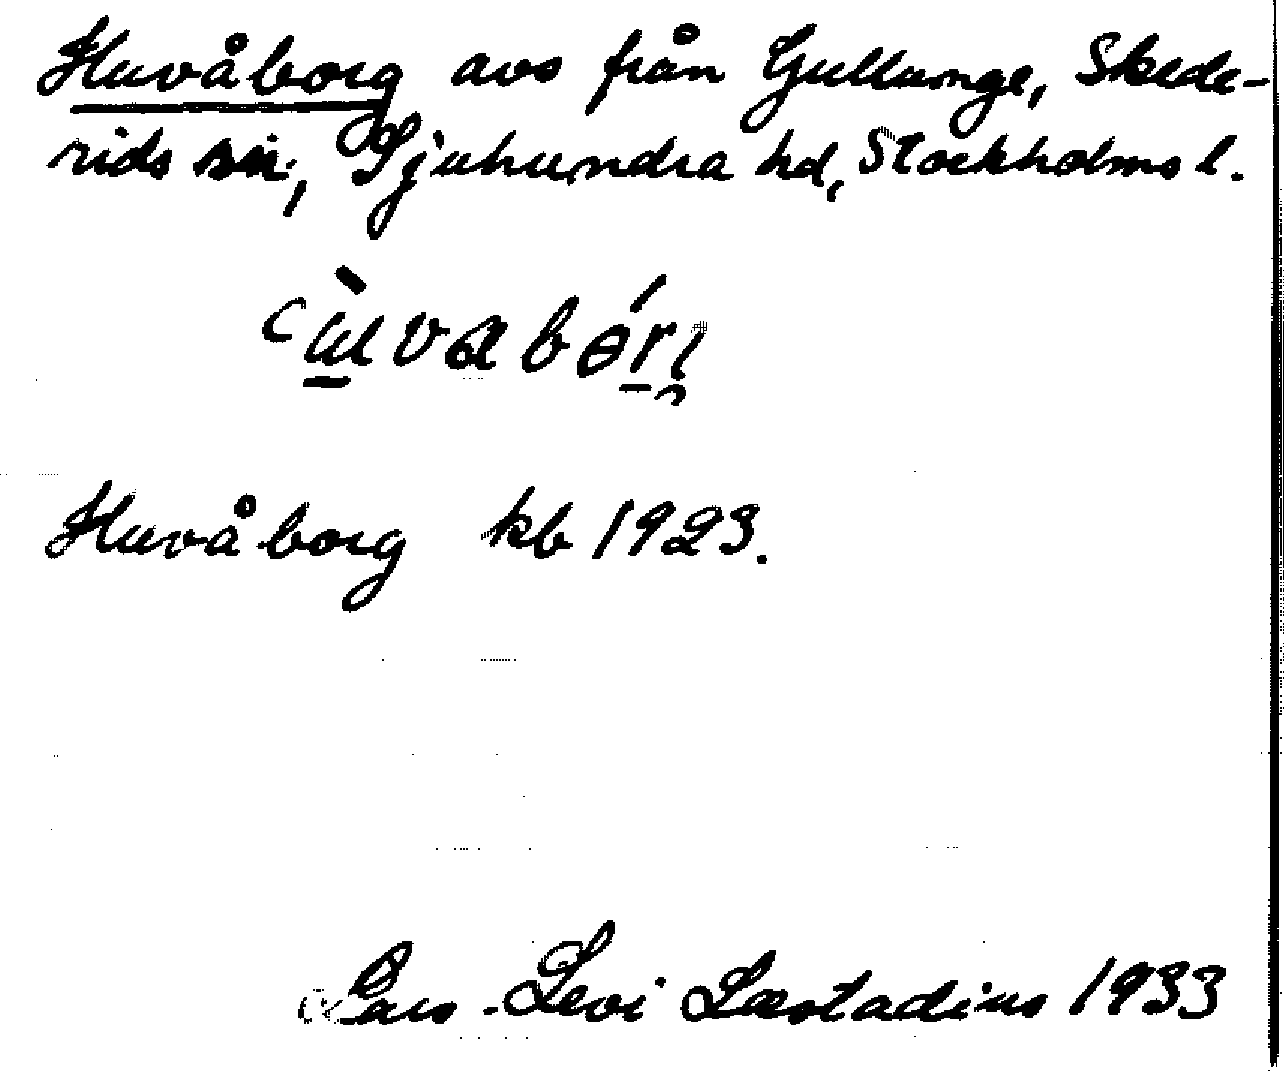 Huvåborg avs från Gullunge, Skede-
rids sn, Sjuhundra hd, Stockholms l.
Huvåborg kb 1923.
Lars-Levi Læstadius 1933